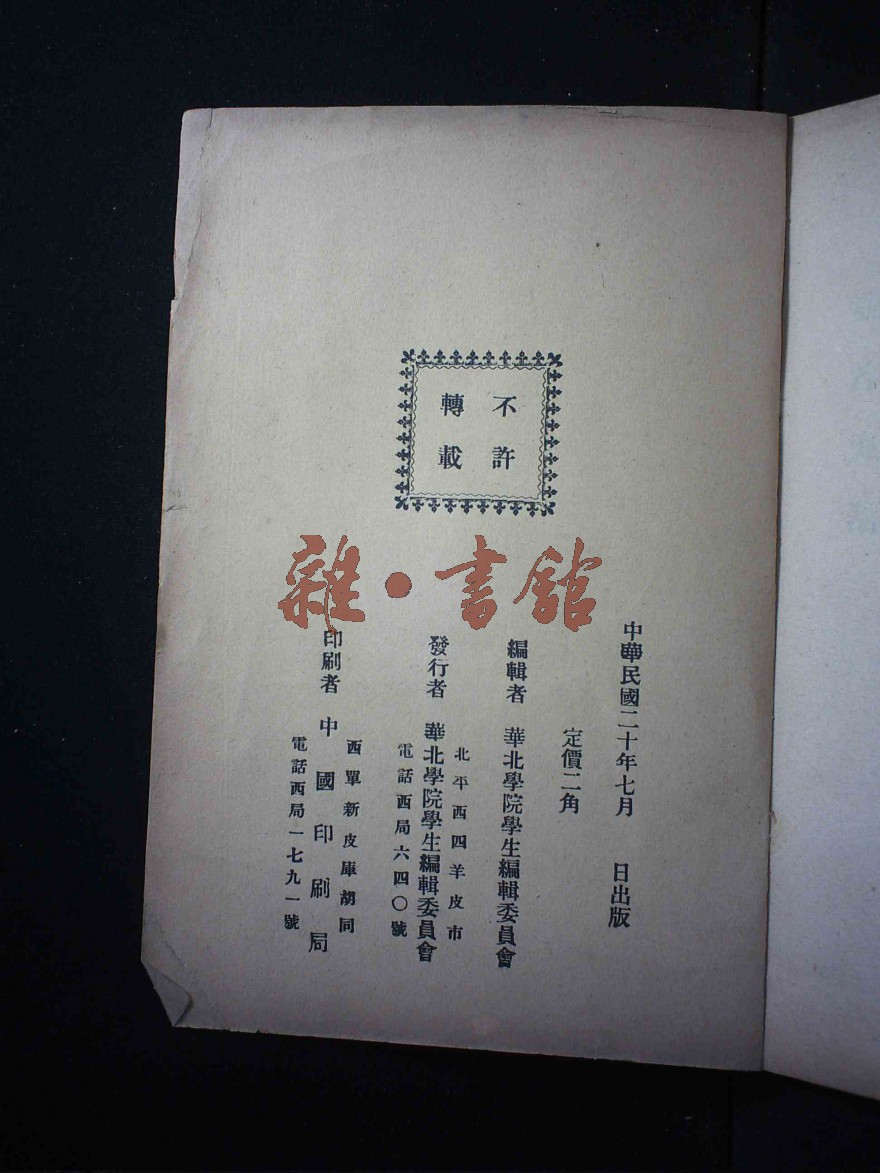 不許
轉載
雜·書館
中華民國二十年七月　日出版
定價二角
編輯者　華北學院學生編輯委員會
北平西四羊皮市
發行者　華北學院學生編輯委員會
電話西局六四〇號
西單新皮庫胡同
印刷者　中國印刷局
電話西局一七九一號